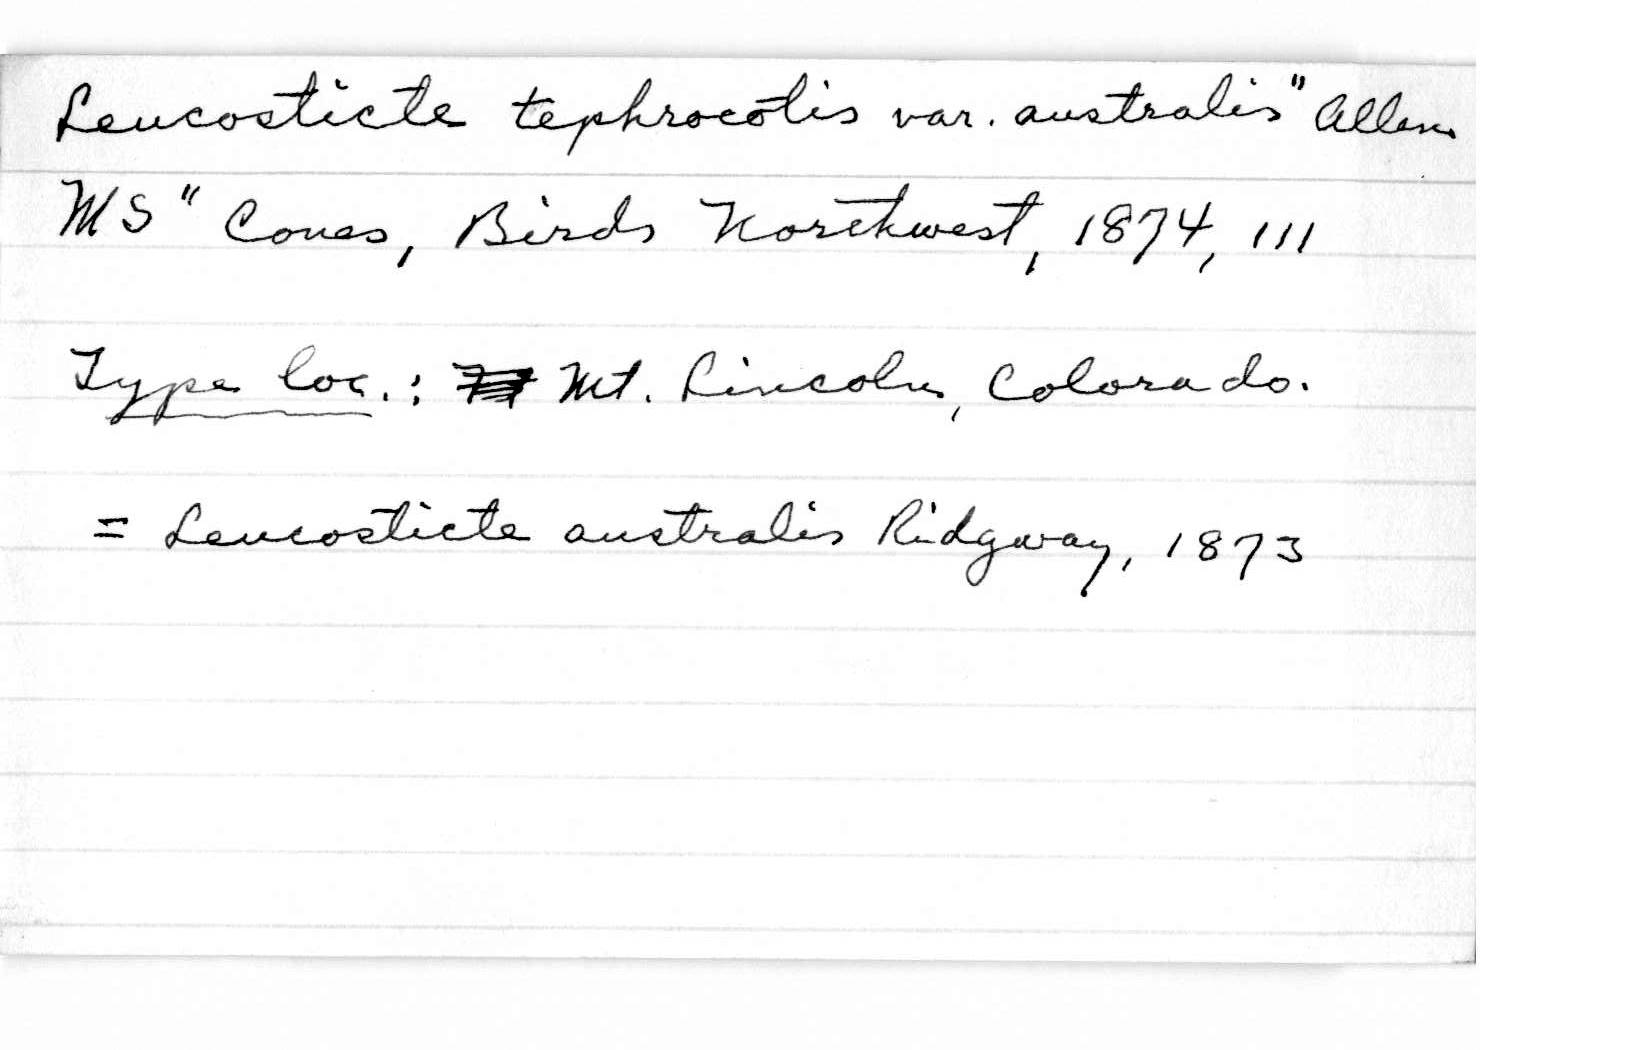 Leucosticte tephrocotis var. australis "Allen
MS" Coues, Birds Northwest, 1874, 111
Type loc.: Mt. Lincoln, Colorado.
= Leucosticte australis Ridgway, 1873